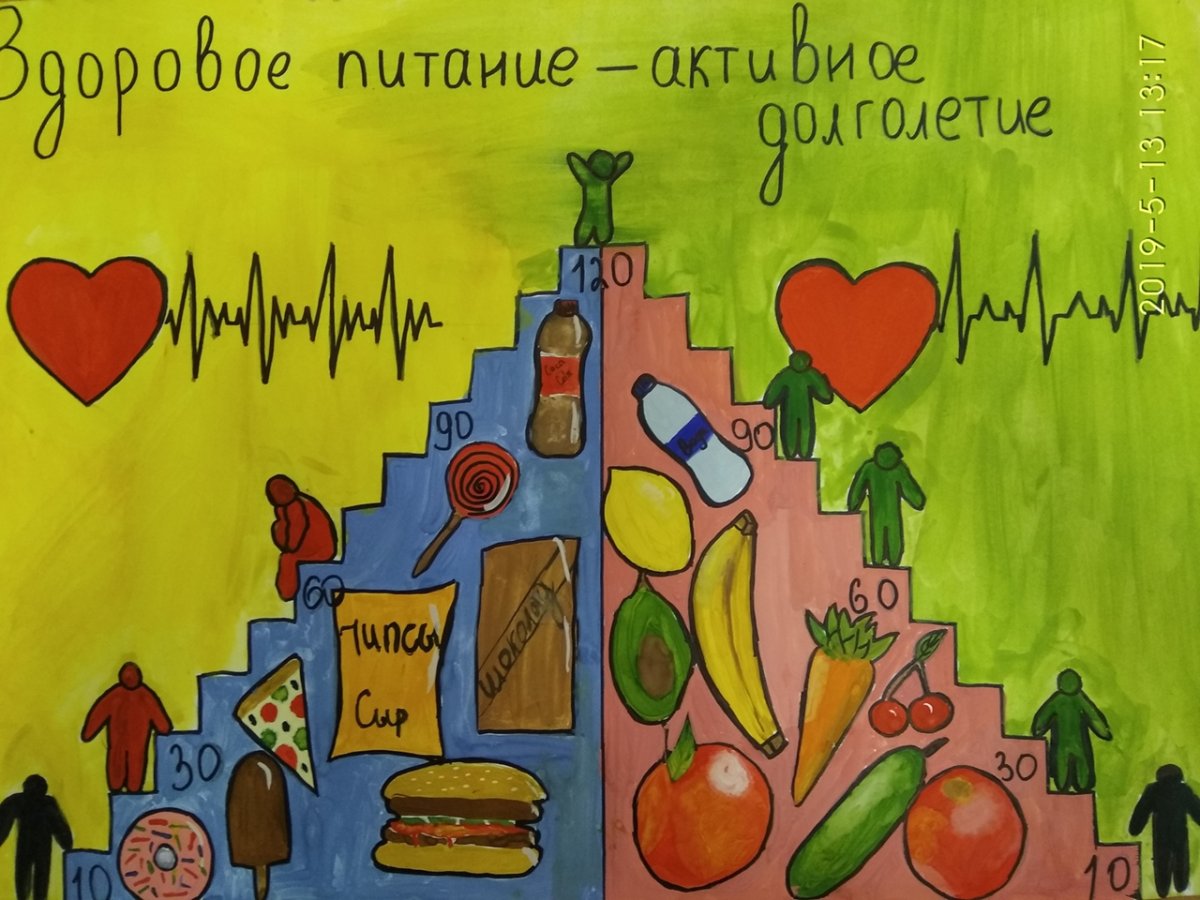 Здоровое питание – активное
долголетие
2019-5-13 13:17
120
90
90
60
60
30
30
10
10
Coca
Cola
Вода
Чипсы
Сыр
шоколад